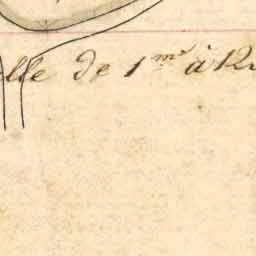 lle de 1 m. à